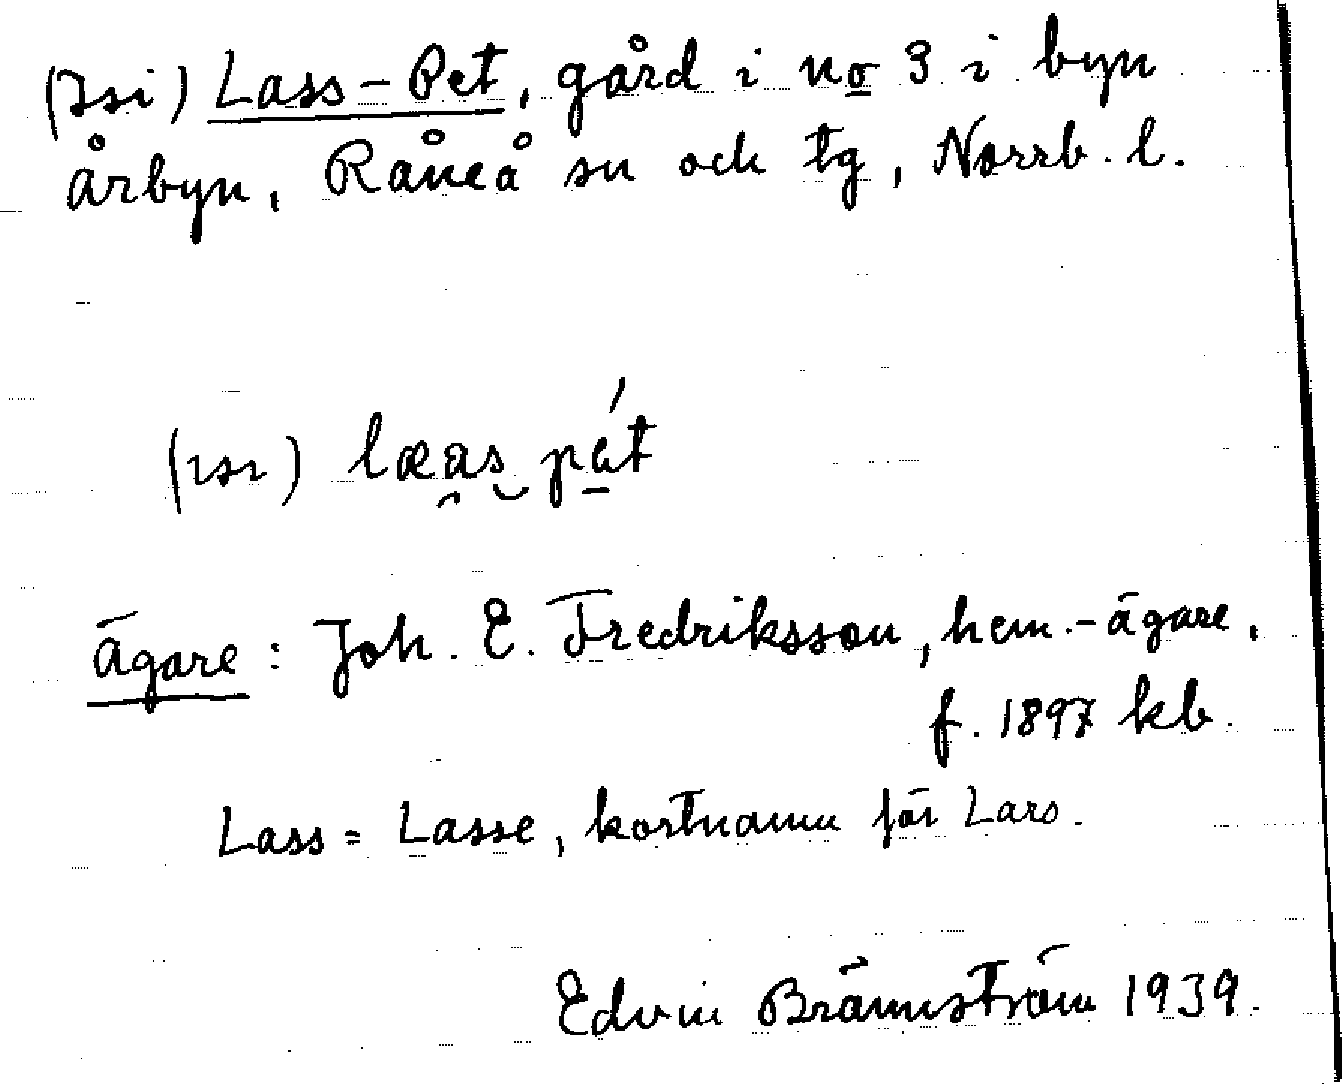 (Isi) Lass-Pet, gård i no 3 i byn
årbyn, Råneå sn och tg, Norrb. l.
(ısı) læas pét
ägare: Joh. E. Fredriksson, hem.-ägare,
f. 1897 kb.
Lass = Lasse, kortnamn för Lars.
Edvin Brännström 1939.